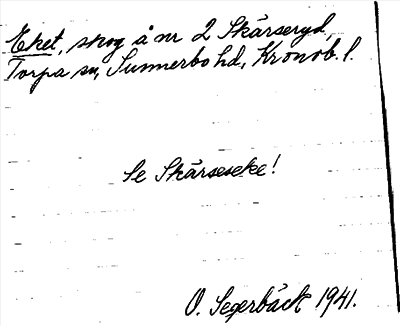 Eket, skog å nr 2 Skärseryd,
Torpa sn, Sunnerbo hd, Kronob. l.
Se Skärseseke!
O. Segerbäck 1941.